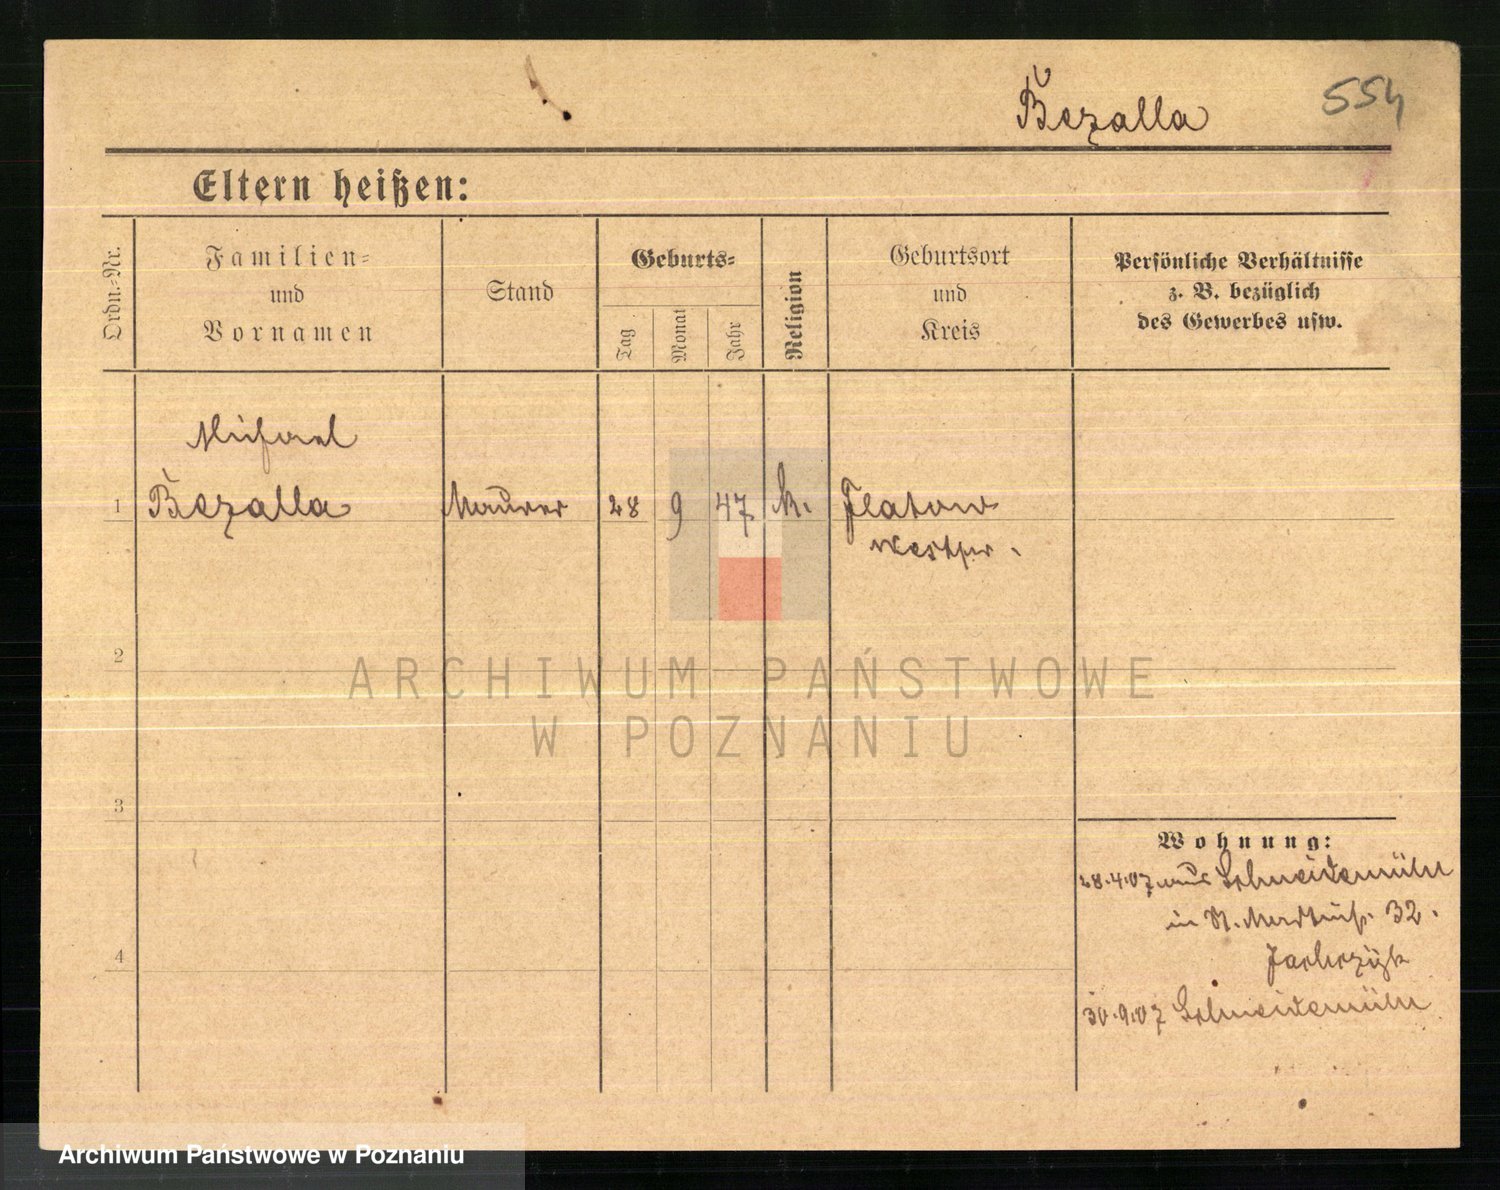 Bezalla
554
Eltern heißen:
Ordn.-Nr.
Familien-
und
Vornamen
Stand
Geburts-
Tag
Monat
Jahr
Religion
Geburtsort
und
Kreis
Persönliche Verhältnisse
z. B. bezüglich
des Gewerbes usw.
Michael
1 Bezalla Maurer 28 9 47 k. Flatow
Westpr.
2
ARCHIWUM PAŃSTWOWE
W POZNANIU
3
Wohnung:
28.4.07 aus Schneidemühl
in St. 32.
4
30.9.07 Schneidemühl
Archiwum Państwowe w Poznaniu